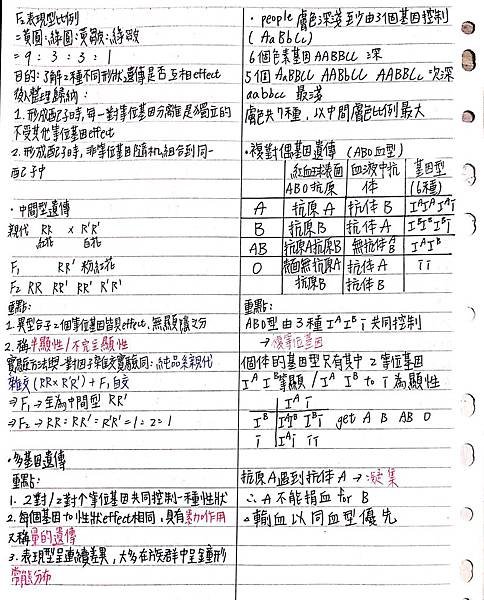 F₂表現型比例
=黃圓:綠圓:黃皺:綠皺
= 9 : 3 : 3 : 1
目的:了解2種不同形狀遺傳是否互相effect
後人整理歸納:
1. 形成配子時,每一對等位基因分離是為獨立的
不受其他等位基因effect
2. 形成配子時,非等位基因隨机組合到同一
配子中
·中間型遺傳
親代 RR × R'R'
紅花 白花
F₁ RR' 粉紅花
F₂ RR RR' RR' R'R'
重點:
1. 異型合子2個等位基因皆具effect,無顯隱之分
2. 稱半顯性/不完全顯性
實驗方法與一對因子雜交實驗同:純品系親代
雜交(RR×R'R')+F₁自交
⇒ F₁→全為中間型 RR'
⇒ F₂→RR:RR':R'R'=1:2:1
·多基因遺傳
重點:
1. 2對/2對↑等位基因共同控制一種性狀
2. 每個基因to性狀effect相同,具有累加作用
又稱量的遺傳
3. 表現型呈連續差異,大多在族群中呈鐘形
常態分布
· people膚色深淺至少由3個基因控制
(AaBbCc)
6個色素基因AABBCC 深
5個 AaBBCC AABbCC AABBCc 次深
aabbcc 最淺
膚色共7種,以中間膚色比例最大
·複對偶基因遺傳 (ABO血型)
紅血球表面ABO抗原 血液中抗体 基因型(6種)
A 抗原A 抗体B IᴬIᴬ Iᴬi
B 抗原B 抗体A IᴮIᴮ Iᴮi
AB 抗原A抗原B 無抗体 IᴬIᴮ
O 表面無抗原A抗原B 抗体A抗体B ii
重點:
ABO型由3種 Iᴬ Iᴮ i 共同控制
→複等位基因
個体的基因型只有其中2等位基因
Iᴬ Iᴮ等顯 / Iᴬ Iᴮ to i 為顯性
Iᴬ i
Iᴮ IᴬIᴮ Iᴮi get A B AB O
i Iᴬi ii
抗原A遇到抗体A → 凝集
∴ A不能捐血 for B
△ 輸血以同血型優先